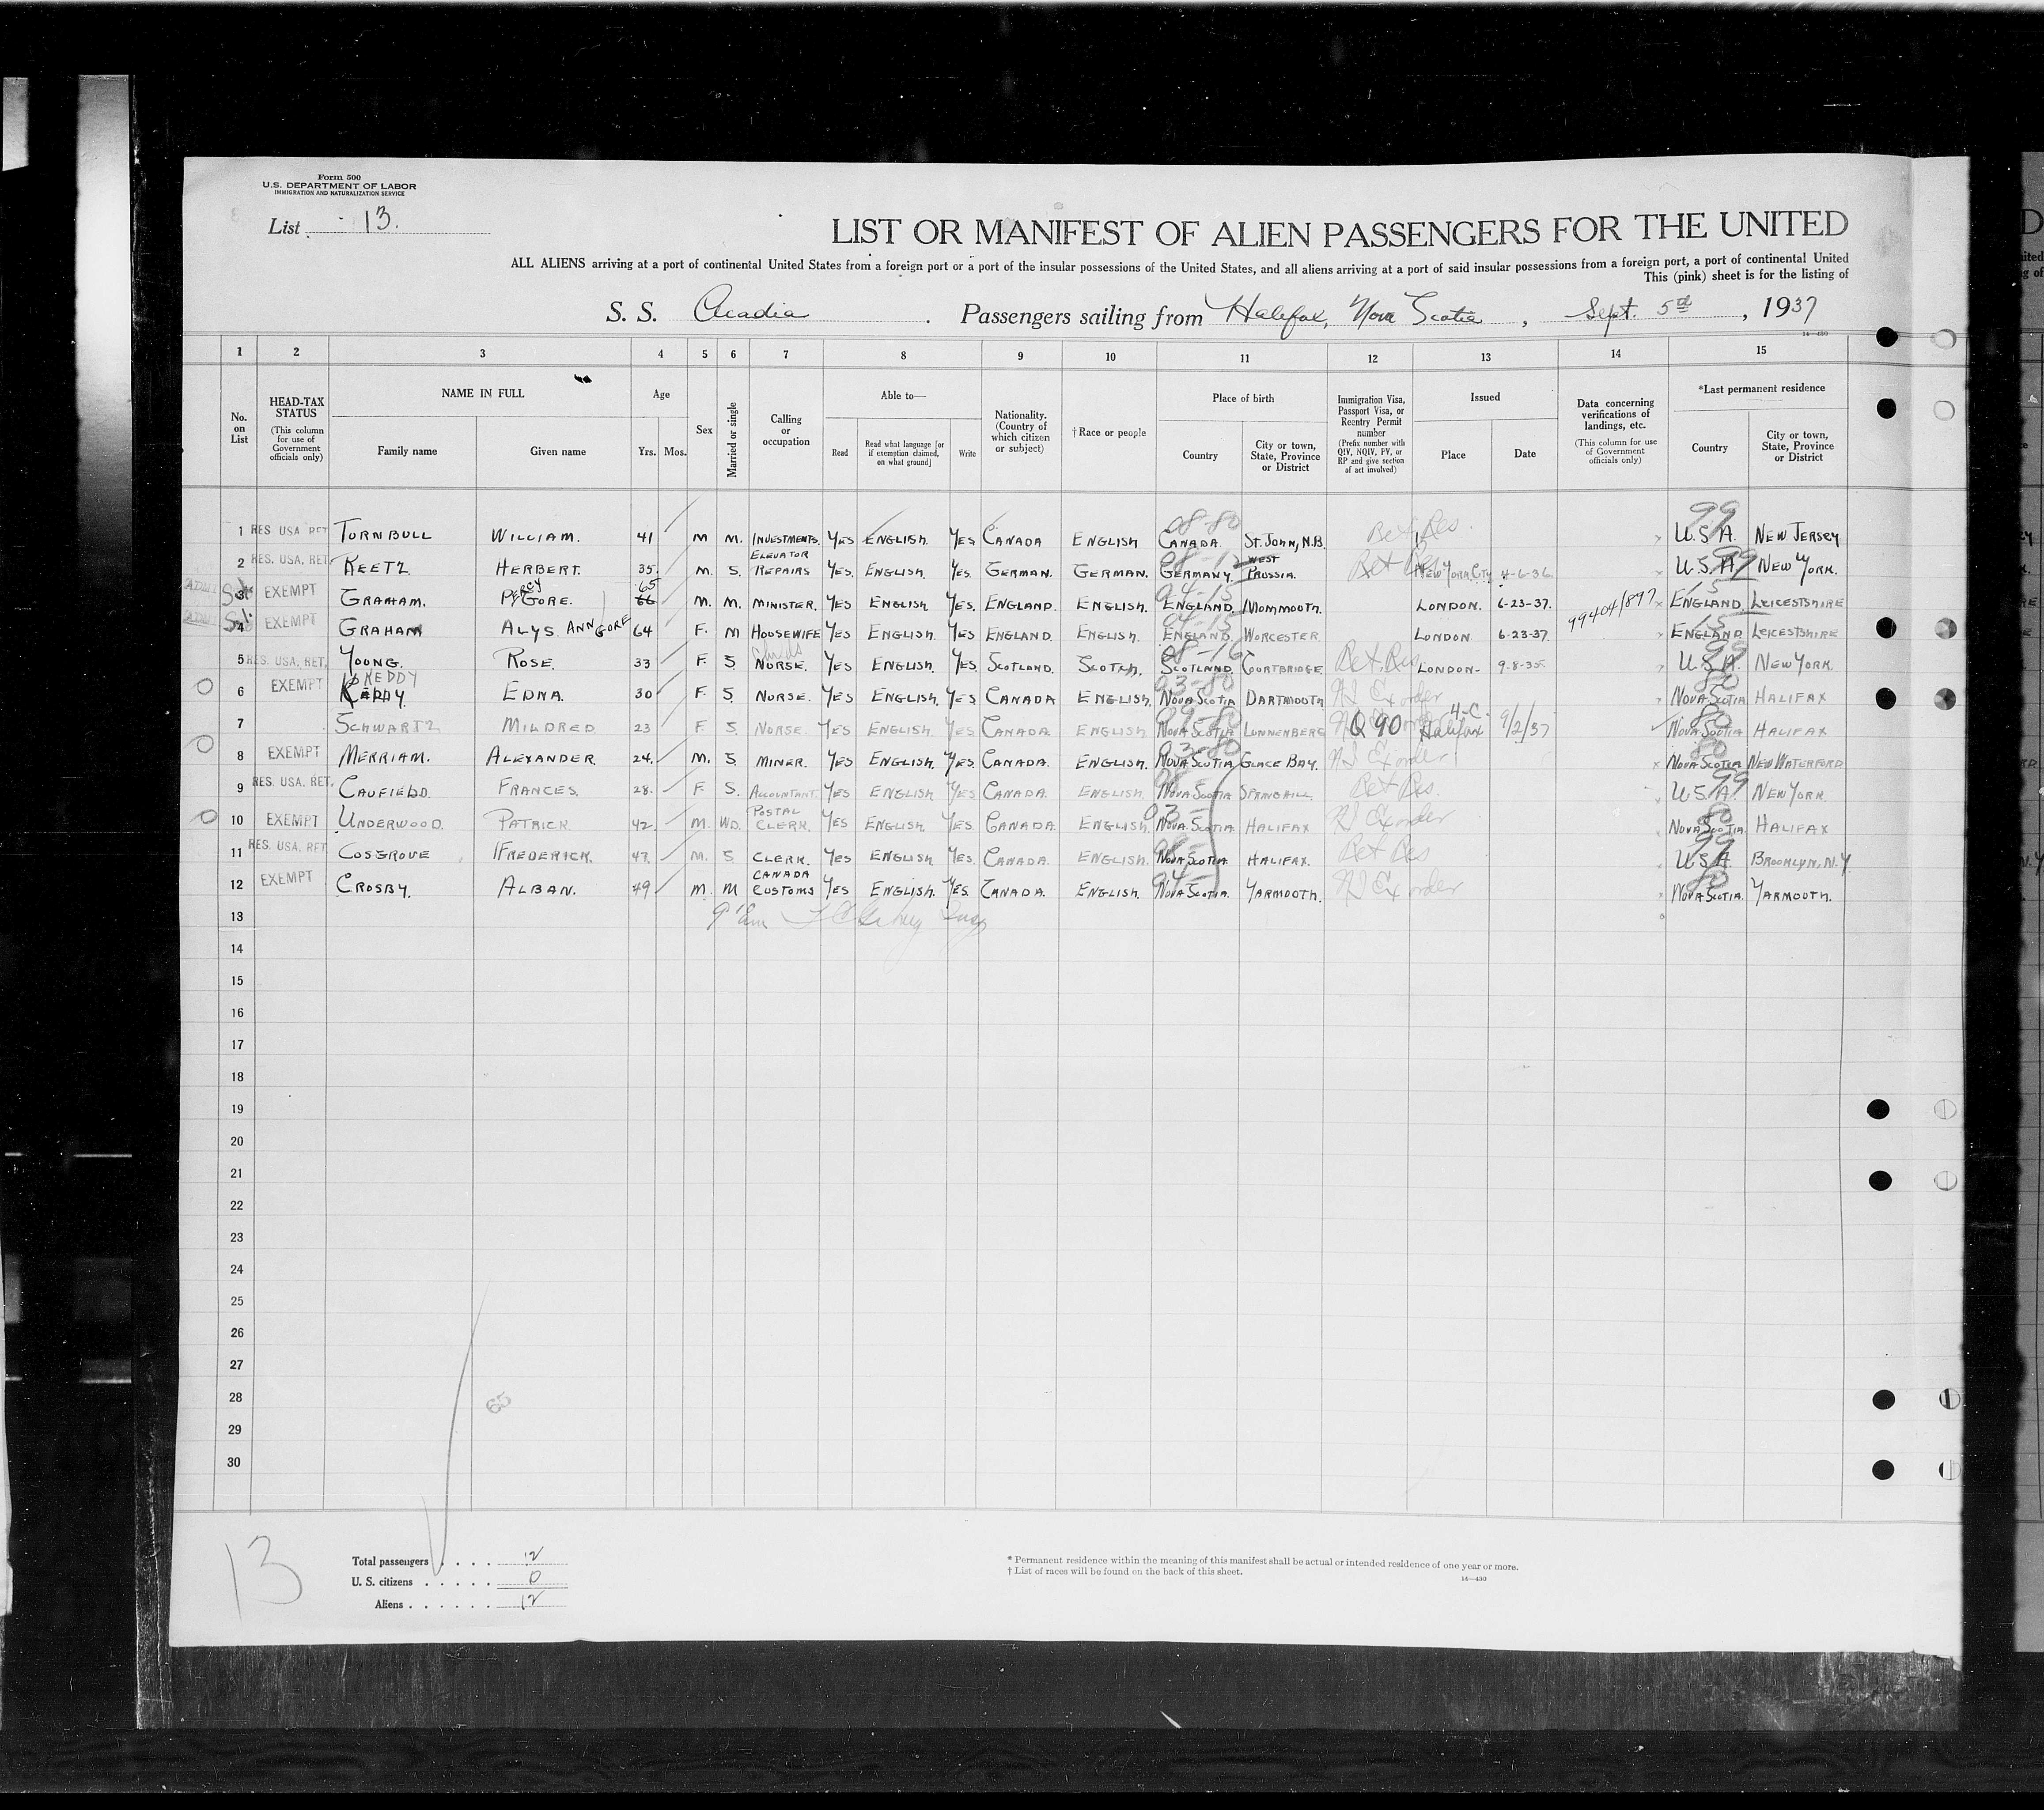 Form 500
U.S. DEPARTMENT OF LABOR
IMMIGRATION AND NATURALIZATION SERVICE
List 13.
LIST OR MANIFEST OF ALIEN PASSENGERS FOR THE UNITED
ALL ALIENS arriving at a port of continental United States from a foreign port or a port of the insular possessions of the United States, and all aliens arriving at a port of said insular possessions from a foreign port, a port of continental United
This (pink) sheet is for the listing of
S. S. Acadia. Passengers sailing from Halifax, Nova Scotia, Sept. 5th, 1937
14-430
1 2 3 4 5 6 7 8 9 10 11 12 13 14 15
No. on List
HEAD-TAX STATUS (This column for use of Government officials only)
NAME IN FULL
Family name Given name
Age
Yrs. Mos.
Sex
Married or single
Calling or occupation
Able to—
Read Read what language [or if exemption claimed, on what ground] Write
Nationality. (Country of which citizen or subject)
†Race or people
Place of birth
Country City or town, State, Province or District
Immigration Visa, Passport Visa, or Reentry Permit number (Prefix number with QIV, NQIV, PV, or RP and give section of act involved)
Issued
Place Date
Data concerning verifications of landings, etc. (This column for use of Government officials only)
*Last permanent residence
Country City or town, State, Province or District
08-80 Ret Res. 99
1 RES. USA. RET TURNBULL WILLIAM. 41 M M. INVESTMENTS. YES ENGLISH. YES CANADA ENGLISH CANADA. ST. JOHN, N.B. U.S.A. NEW JERSEY
2 RES. USA. RET. KEETZ HERBERT. 35. M. S. ELEVATOR REPAIRS YES. ENGLISH. YES. GERMAN. GERMAN. GERMANY. WEST PRUSSIA. Ret Res NEW YORK CITY 4-6-36 U.S.A. 99 NEW YORK.
3 EXEMPT GRAHAM. PERCY GORE. 65 66 M. M. MINISTER. YES ENGLISH YES. ENGLAND. ENGLISH. 04-15 ENGLAND. MONMOUTH. LONDON. 6-23-37. 99404/897 15 ENGLAND, LEICESTSHIRE
4 EXEMPT GRAHAM ALYS ANN GORE 64 F. M HOUSEWIFE YES ENGLISH. YES ENGLAND. ENGLISH. 04-15 ENGLAND. WORCESTER. LONDON 6-23-37. 15 ENGLAND, LEICESTSHIRE
5 RES. USA. RET. YOUNG. ROSE. 33 F. S. Childs NURSE. YES ENGLISH. YES. SCOTLAND. SCOTCH. 08-16 SCOTLAND COURTBRIDGE. Ret Res LONDON- 9-8-35. 99 U.S.A. NEW YORK.
KEDDY
6 EXEMPT EDNA. 30 F. S. NURSE. YES ENGLISH, YES CANADA ENGLISH, 03-80 NOVA SCOTIA DARTMOUTH. 80 NOVA SCOTIA HALIFAX
7 SCHWARTZ MILDRED. 23 F. S. NURSE. YES ENGLISH. YES CANADA. ENGLISH. NOVA SCOTIA LUNNENBERG Q 90 4-C. Halifax 9/2/37 80 NOVA SCOTIA HALIFAX
8 EXEMPT MERRIAM. ALEXANDER. 24. M. S. MINER. YES ENGLISH. YES. CANADA. ENGLISH. 03-80 NOVA SCOTIA, GLACE BAY. 80 NOVA SCOTIA NEW WATERFORD
9 RES. USA. RET. CAUFIELD. FRANCES. 28. F. S. ACCOUNTANT. YES ENGLISH YES CANADA ENGLISH. NOVA SCOTIA SPRINGHILL. Ret Res. 99 U.S.A. NEW YORK.
10 EXEMPT UNDERWOOD. PATRICK. 42. M. WD. POSTAL CLERK. YES ENGLISH. YES. CANADA. ENGLISH. 03- NOVA SCOTIA HALIFAX 80 NOVA SCOTIA HALIFAX
11 RES. USA. RET COSGROVE FREDERICK. 47. M. S. CLERK. YES ENGLISH YES. CANADA. ENGLISH. NOVA SCOTIA. HALIFAX. Ret Res 99 U.S.A. BROOKLYN, N.Y.
12 EXEMPT CROSBY. ALBAN. 49 M. M CANADA CUSTOMS YES ENGLISH. YES. CANADA. ENGLISH. 04- NOVA SCOTIA. YARMOUTH. 80 NOVA SCOTIA. YARMOUTH.
13
14
15
16
17
18
19
20
21
22
23
24
25
26
27
28
29
30
65
13
Total passengers . . . . 12
U. S. citizens . . . . . 0
Aliens . . . . . . 12
* Permanent residence within the meaning of this manifest shall be actual or intended residence of one year or more.
† List of races will be found on the back of this sheet.
14-430